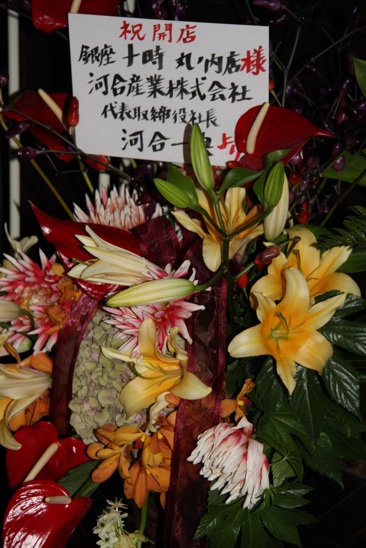 祝開店
銀座 十時 丸ノ内店様
河合産業株式会社
代表取締役社長
河合一